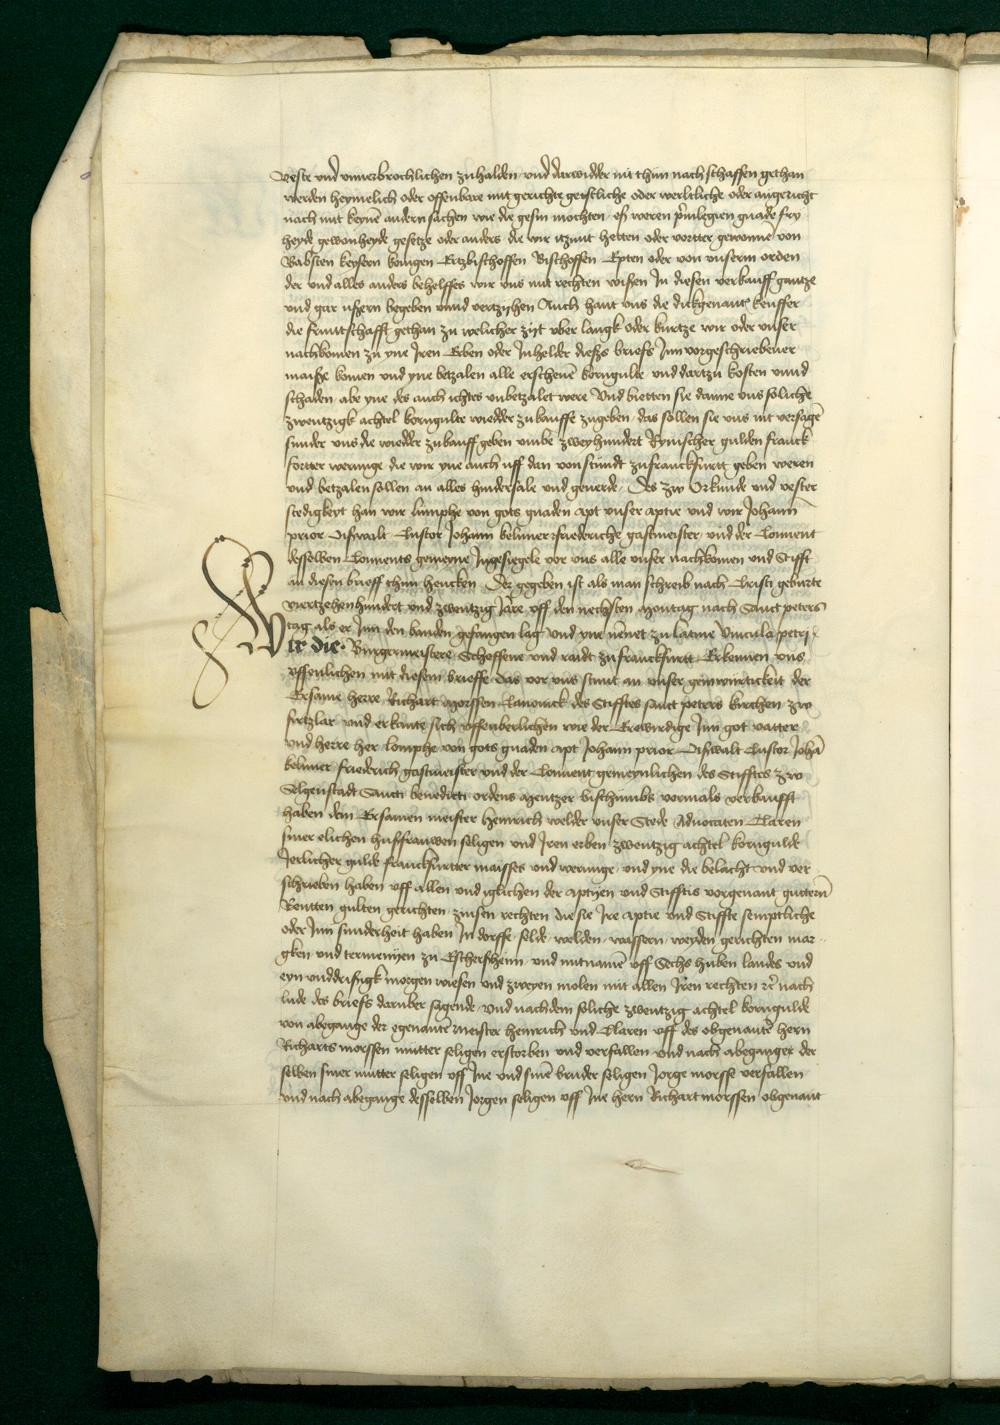 veste und unverbrochlichen zuhalden und darwidder nit thun nach schaffen gethan
werden heymelich oder offenbare mit gerichte geistliche oder werltliche oder angericht
nach mit keyne andern sachen wie die gesin mochten, eß weren privilegien gnade fry
heyde gewonheyde gesetze oder anders die wir itzunt hetten oder vortter gewonne von
Babsten keysern konigen Ertzbischoffen Bischoffen Epten oder von unserm orden
der und alles anders behelffes wir uns mit rechten wissen In diesen verkauff gantze
und gar ussern begeben unnd vertzyhen Auch hant uns die dickgenante keuffer
die fruntschafft gethan zu welicher zyt uber langk oder kurtze wir oder unser
nachkomen zu yne Iren Erben oder Inhelder dießs briefs Inn vorgeschriebener
maiße komen und yne betzalen alle erschene korngulde und dartzu kosten unnd
schaden abe yne des auch ichtes unbetzalet were Und bietten sie danne uns soliche
zwentzigk achtel korngulte wiedder zukauffe zugeben, das sollen sie uns nit versage
sunder uns die wiedder zukauff geben umbe zweyhundert Rynischer gulden franck
fortter werunge die wir yne auch uff dan von stundt zufranckfurtt geben weren
und betzalen sollen an alles hindersale und geverde, Des zw Orkunde und vester
stedigkeyt han wir lumphe von gots gnaden apt unser aptie und wir Johann
prior Dißwalt Custor Johann kelnner friederiche gastmeister und der Convent
desselben Convents gemeyne Ingesiegele vor uns alle unser nachkomen und Stifft
an diesen brieff thun hencken Der gegeben ist als man schreib nach Cristi geburte
viertzehenhundert und zwentzig Jare uff den nechsten montag nach Sanct peters
tag als er Inn den banden gefangen lag und yne nenet zu latine Vincula petri
Wir die Burgermeistere Scheffene und raidt zufranckfurtt Erkennen uns
uffenlichen mit diesem brieffe das vor uns stunt an unser geinwurtickeit der
Ersame herre Richart morssen Canonick des Stifftes sanct peters kirchen zw
fritzlar und erkante sich uffenberlichen wie der Erewirdige Inn got vatter
und herre her lomphe von gots gnaden apt Johann prior Dißwalt Custor Joha
kelnner friederich gastmeister und der Convent gemeynlichen des Stifftes zw
Selgenstadt Sancti benedicti ordens mentzer bischtumbs vormals verkaufft
haben dem Ersamen meister heinrich welder unser Stede Advocaten Claren
siner elichen hußfrauwen seligen und Iren erben zwentzig achtel korngulde
Jerlicher gulde franckfurtter maisses und werunge und yne die belacht und ver
schrieben haben uff allen und iglichen der aptyen und Stifftis vorgenant guttern
Rentten gulten gerichten zinsen rechten die sie Ire aptie und Stiffte semptliche
oder Inn sunderheit haben In dorffe felde welden wassern weyden gerichten mar
gken und termenyen zu Eschersheim und mitname uff Sechs huben landes und
eyn unddrissigk morgen wiesen und zweyen molen mit allen Iren rechten nach
lude des briefs daruber sagende und nachdem soliche zwentzig achtel korngulde
von abegange der egenante meister heinrich und Claren uff des obgenante hern
Richarts morssen mutter seligen erstorben und verfallen und nach abegange der
selben siner mutter seligen uff Ine und sine bruder seligen Jorge morsse verfallen
und nach abegange desselben Jorgen seligen uff Ine hern Richart morssen obgenant